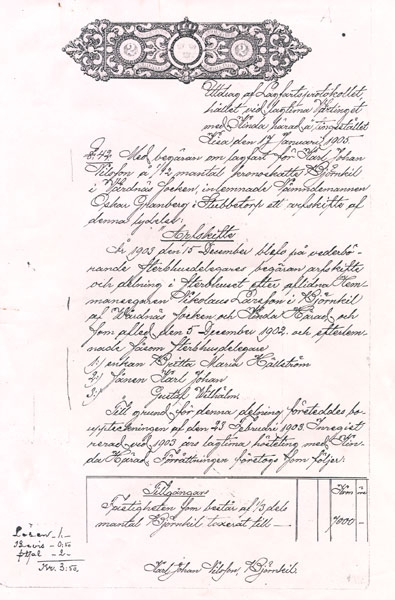 2 2
Utdrag af Lagfartsprotokollet,
hållet vid lagtima Vårtinget
med Kinda härad å tingsstället
Kisa den 17 Januari 1905.
§ 42. Med begäran om lagfart för Karl Johan
Nilsson å 1/2 mantal kronoskatte Björnkil
i Vårdnäs Socken, inlemnade Nämndemannen
Oskar Granberg i Stubbetorp ett arfskifte af
denna lydelse:
"Arfskifte
År 1903 den 15 December blef på vederbö-
rande Sterbhusdelegares begäran arfskifte
och delning i Sterbhuset efter aflidna Hem-
mansegaren Nikolaus Larsson i Björnkil
af Wårdnäs Socken och Kinda Härad och
som afled den 5 December 1902. och efterlem-
nade såsom Sterbhusdelegare
1/ enkan Britta Maria Hällström
2/ Sönen Karl Johan
3/ Gustaf Wilhälm.
Till grund för denna delning företeddes bo-
uppteckningen af den 23 Februari 1903. Inregist
rerad vid 1903 års lagtima hösteting med Kin-
da Härad. Förrättningen företogs som följer:
Tillgångar Kron ör
Fastigheten som består af 1/3 dels
mantal Björnkil taxerat till — 7000 —
Lösen -1-
Bevis - 0,50
-2-
Kr. 3:50
Karl Johan Nilsson, Björnkil.